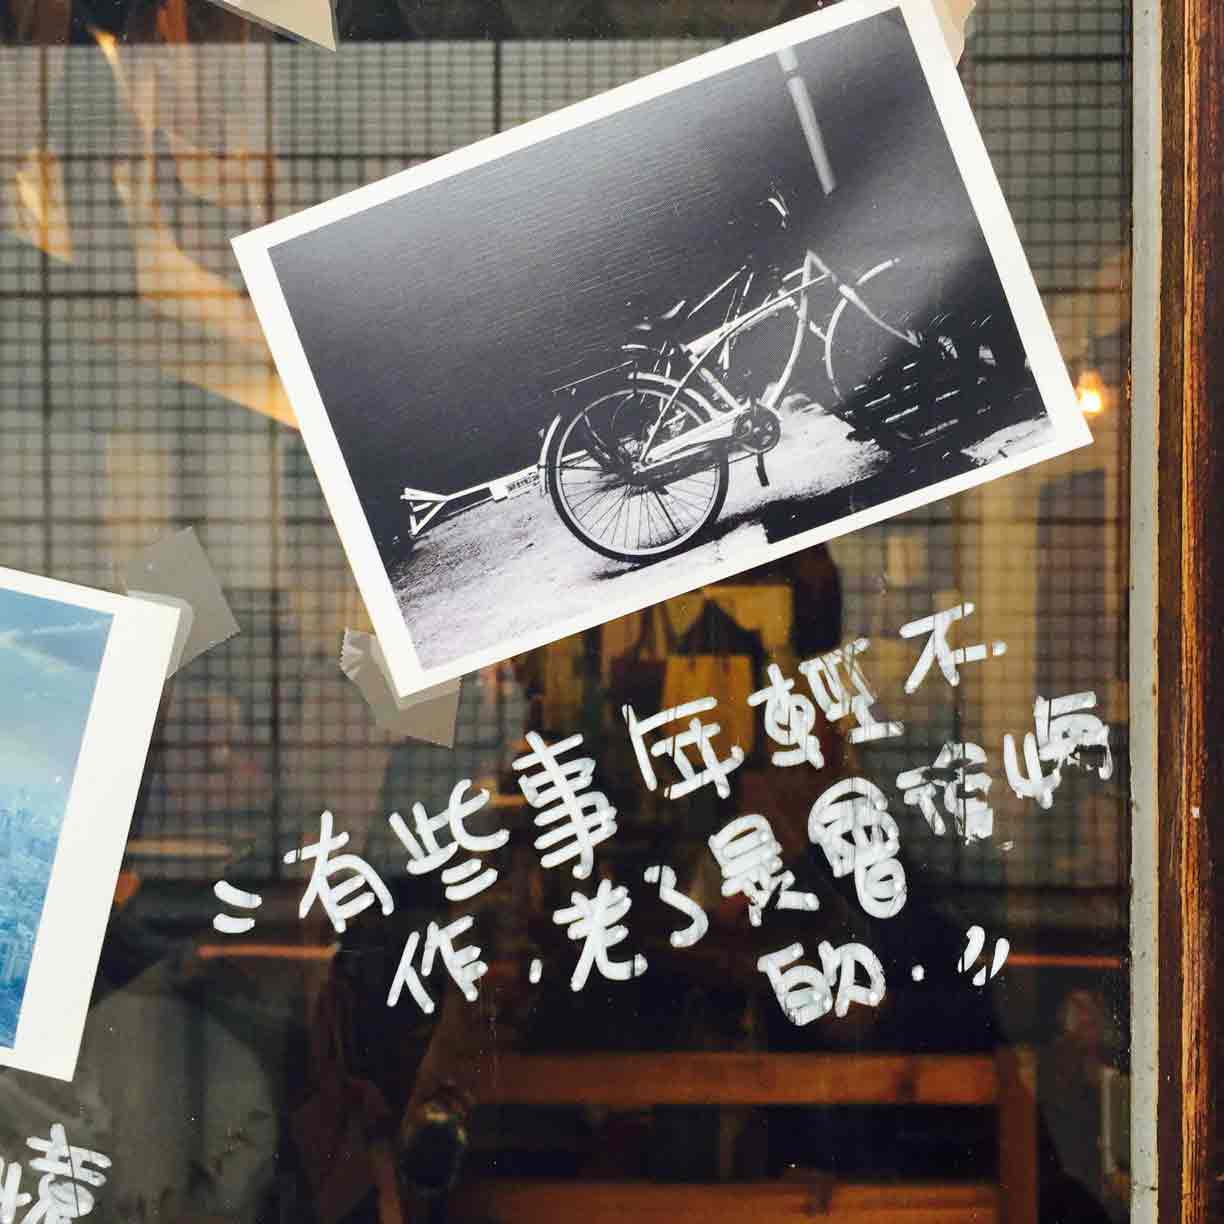 "有些事年輕不
作,老了是會後悔
的."